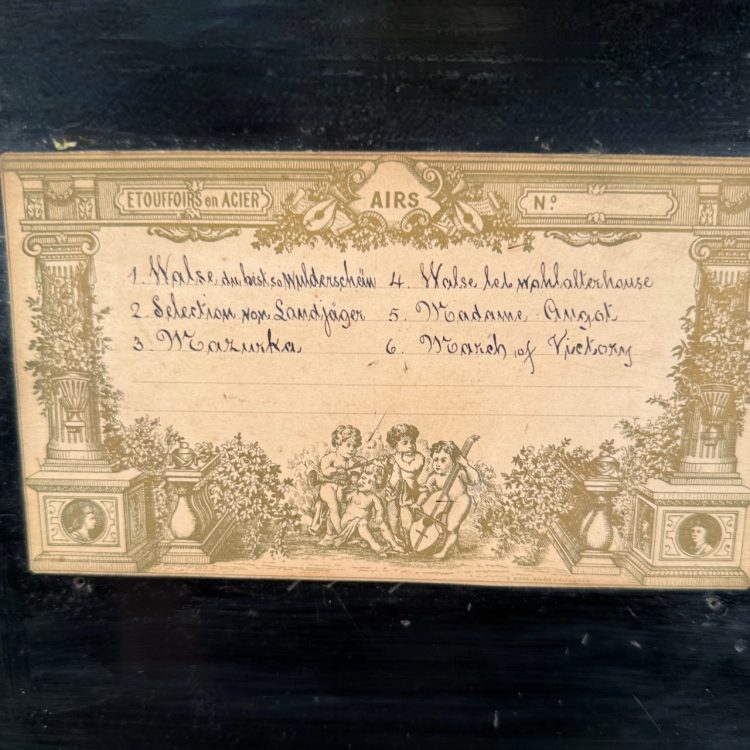 ETOUFFOIRS en ACIER
AIRS
Nº
1. Walse du bist so Wulderschëin
2. Selection von Landjäger
3. Mazurka
4. Walse bei wohlalterhouse
5. Madame Angot
6. March of Victory